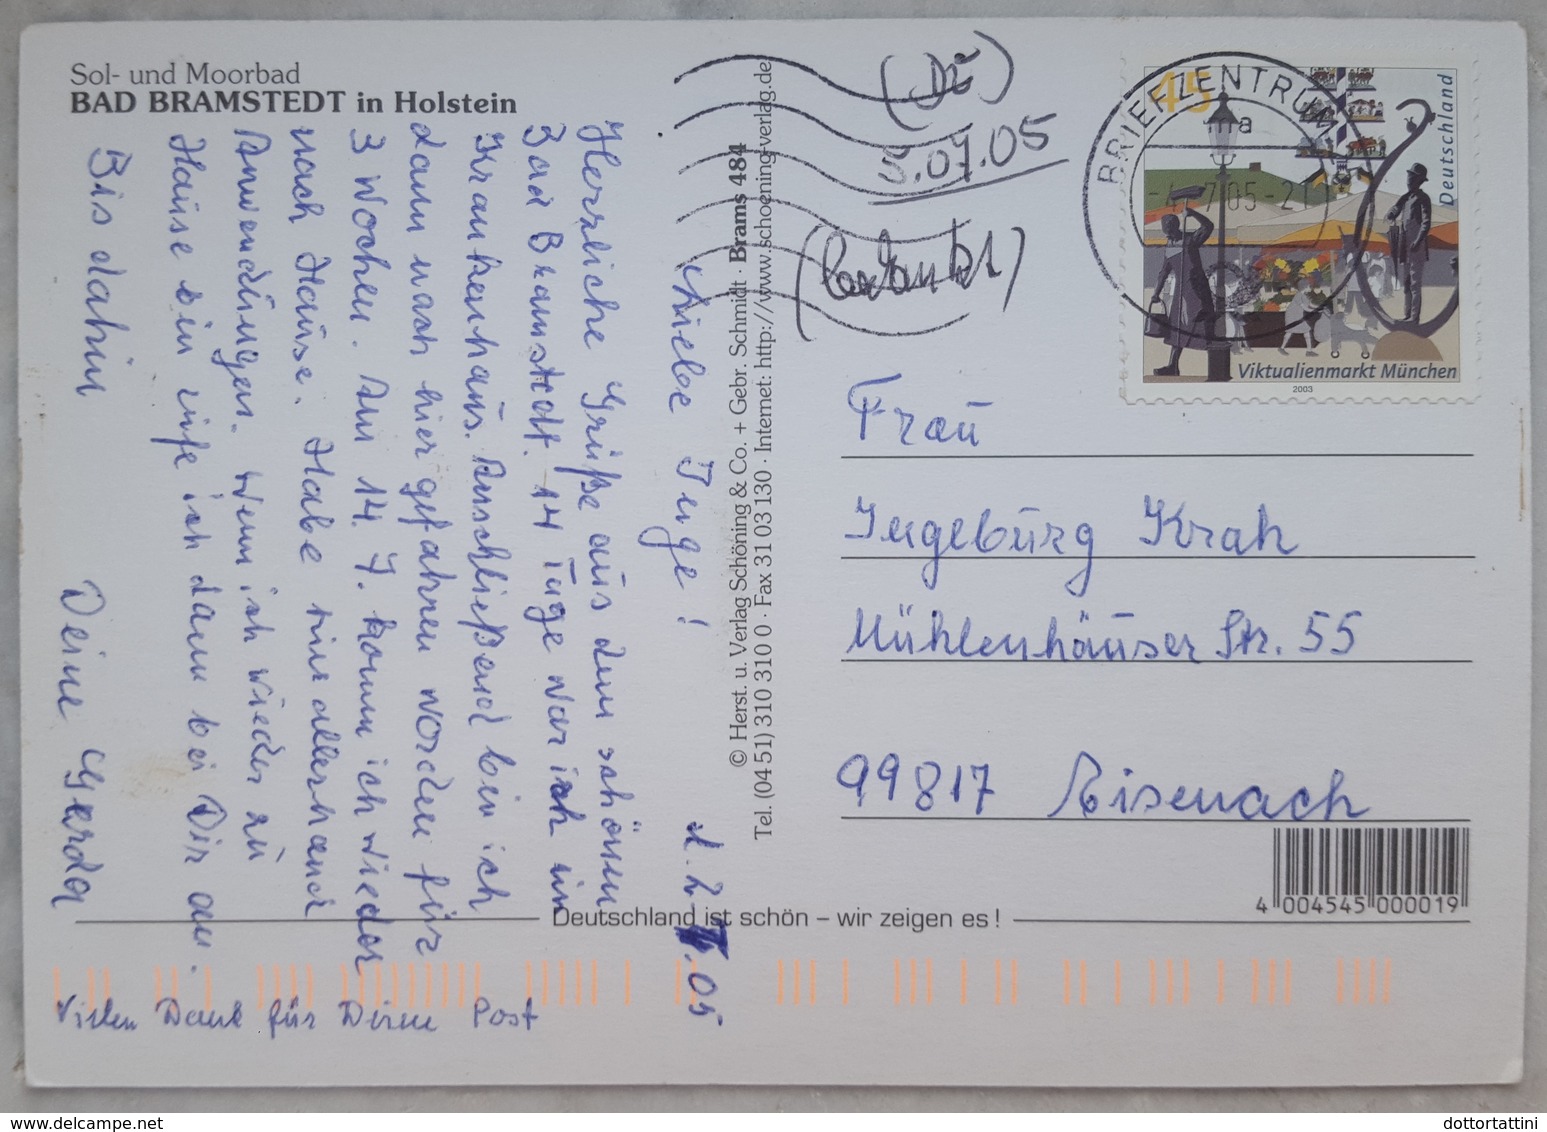 Sol- und Moorbad
BAD BRAMSTEDT in Holstein
Liebe Inge!
1.7.05
Herzliche Grüße aus dem schönen
Bad Bramstedt. 14 Tage war ich im
Krankenhaus. Anschließend bin ich
dann nach hier gefahren worden für
3 Wochen. Am 14. 7. komm ich wieder
nach Hause. Habe hier allerhand
Anwendungen. Wenn ich wieder zu
Hause bin rufe ich dann bei Dir an.
Bis dahin
Deine Gerda
Vielen Dank für Deine Post
© Herst. u. Verlag Schöning & Co. + Gebr. Schmidt · Brams 484
Tel. (04 51) 310 310 0 · Fax 31 03 130 · Internet: http://www.schoening-verlag.de
(Di)
5.07.05
45
Deutschland
Viktualienmarkt München
2003
BRIEFZENTRUM
a
7.05-21
Frau
Ingeburg Krah
Mühlenhäuser Str. 55
99817 Eisenach
4 004545 000019
Deutschland ist schön – wir zeigen es!
dottortattini